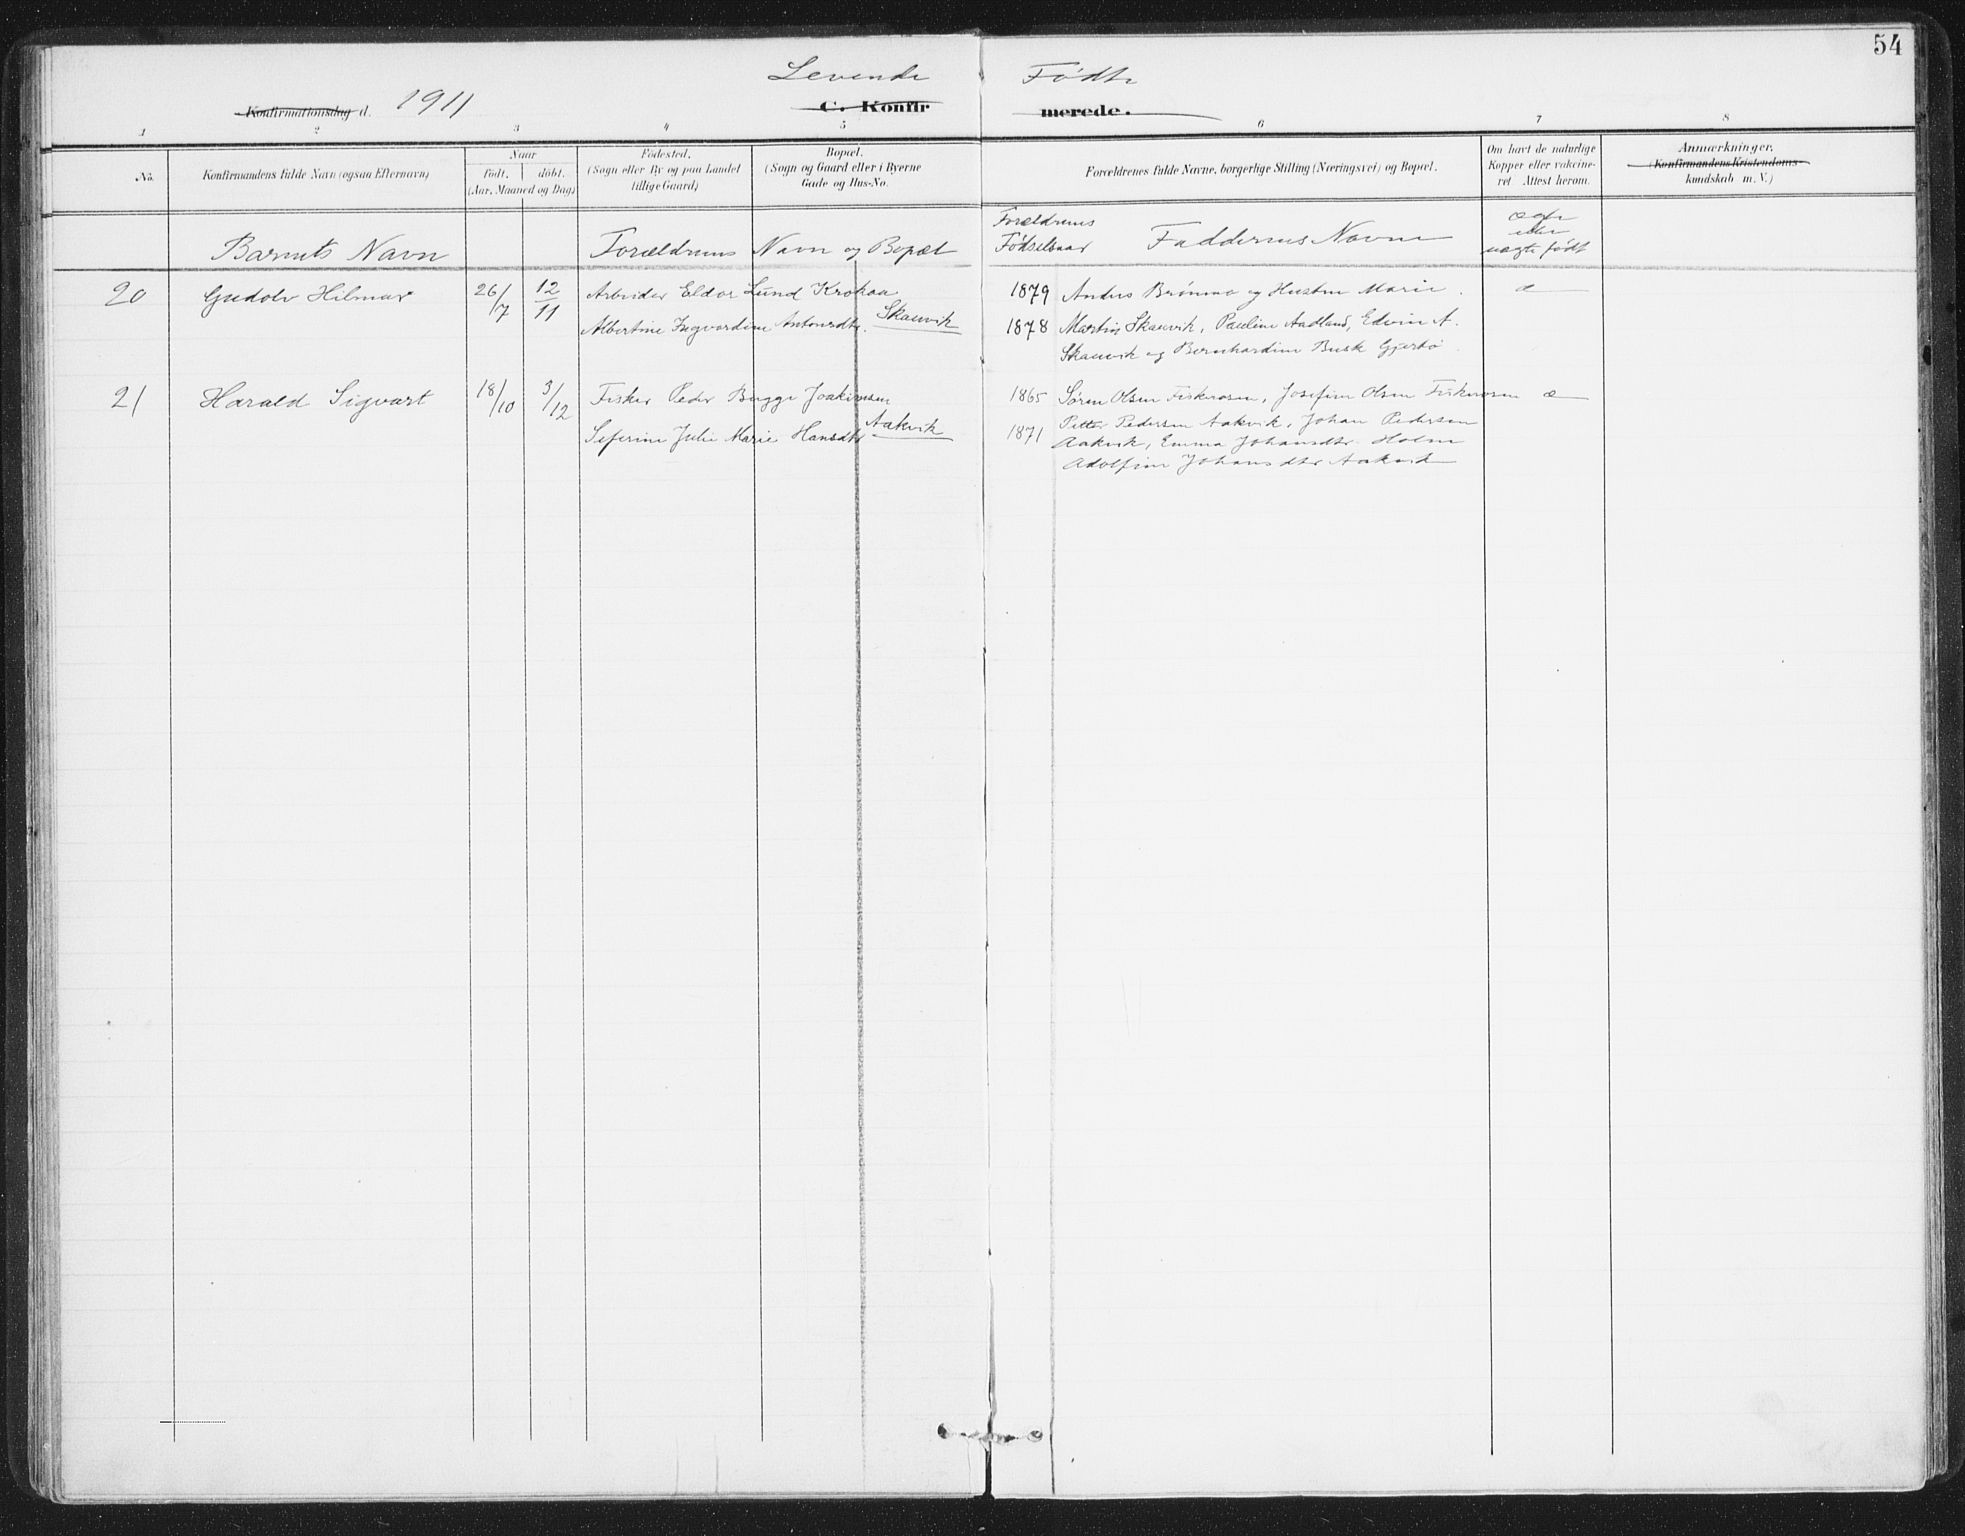 54
Levende Födte
Konfirmationsdag d. 1911 C. Konfir merede.
1 2 3 4 5 6 7 8
No. Konfirmandens fulde Navn (ogsaa Efternavn) Naar Födested. Bopæl. Forældrenes fulde Navne, borgerlige Stilling (Næringsvei) og Bopæl. Om havt de naturlige Anmærkninger.
födt. döbt. (Sogn eller By og paa Landet (Sogn og Gaard eller i Byerne Kopper eller vakcine- (Konfirmandens Kristendoms-
(Aar, Maaned og Dag) tillige Gaard) Gade og Hus-No. ret. Attest herom. kundskab m. V.)
Barnets Navn Forældrenes Navn og Bopæl Forældrenes Fødselsaar Faddernes Navne ægte eller uægte født
20 Gudolv Hilmar 26/7 12/11 Arbeider Eldor Lund Krokaa 1879 Anders Brønmo og Hustru Marie. æ
Albertine Ingvardine Antonsdtr. Skauvik 1878 Martin Skauvik, Pauline Aadland, Edvin A.
Skauvik og Bernhardine Busk Gjerbø
21 Harald Sigvart 18/10 3/12 Fisker Peder Bugge Joakimsen 1865 Søren Olsen Fiskerosen, Josefine Olsen Fiskerosen æ
Seferine Julie Marie Hansdtr Aakvik 1871 Petter Pedersen Aakvik, Johan Pedersen
Aakvik, Emma Johansdtr. Holm
Adolfine Johansdtr Aakvik